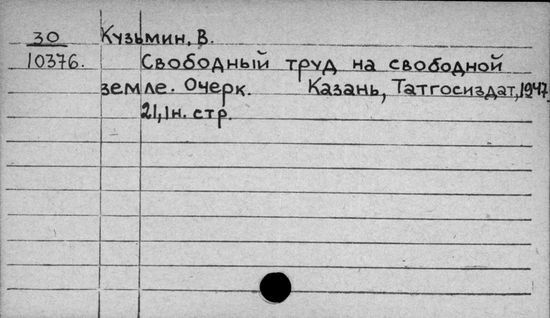 30 Кузьмин, В.
10376. Свободный труд на свободной
земле. Очерк. Казань, Татгосиздат, 1947.
21, 1 н. стр.